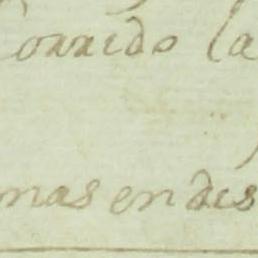 Corrido la
mas en des